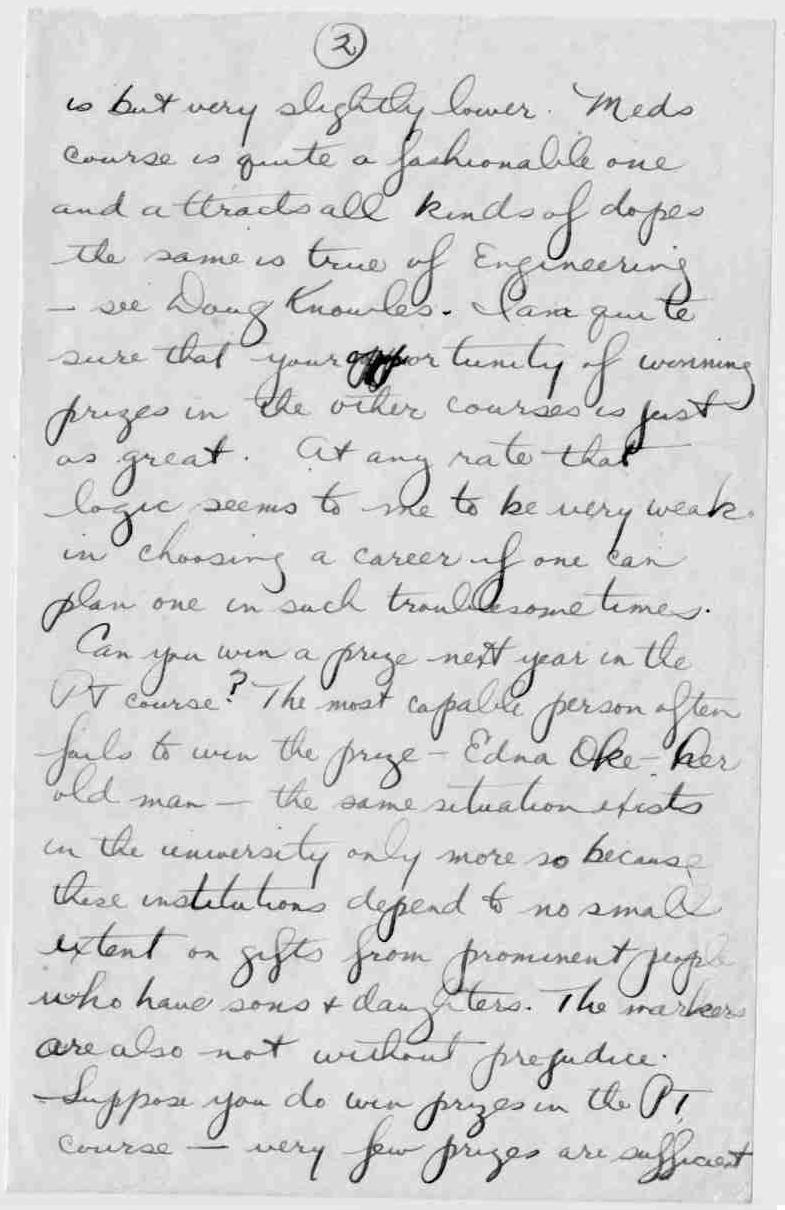 2
is but very slightly lower. Meds
course is quite a fashionable one
and attracts all kinds of dopes
the same is true of Engineering
– see Doug Knowles. I am quite
sure that your opportunity of winning
prizes in the other courses is just
as great. At any rate that
logic seems to me to be very weak.
in choosing a career if one can
plan one in such troublesome times.
Can you win a prize next year in the
PT course? The most capable person often
fails to win the prize – Edna Oke – her
old man – the same situation exists
in the university only more so because
these institutions depend to no small
extent on gifts from prominent people
who have sons + daughters. The markers
are also not without prejudice.
– Suppose you do win prizes in the PT,
course – very few prizes are sufficient